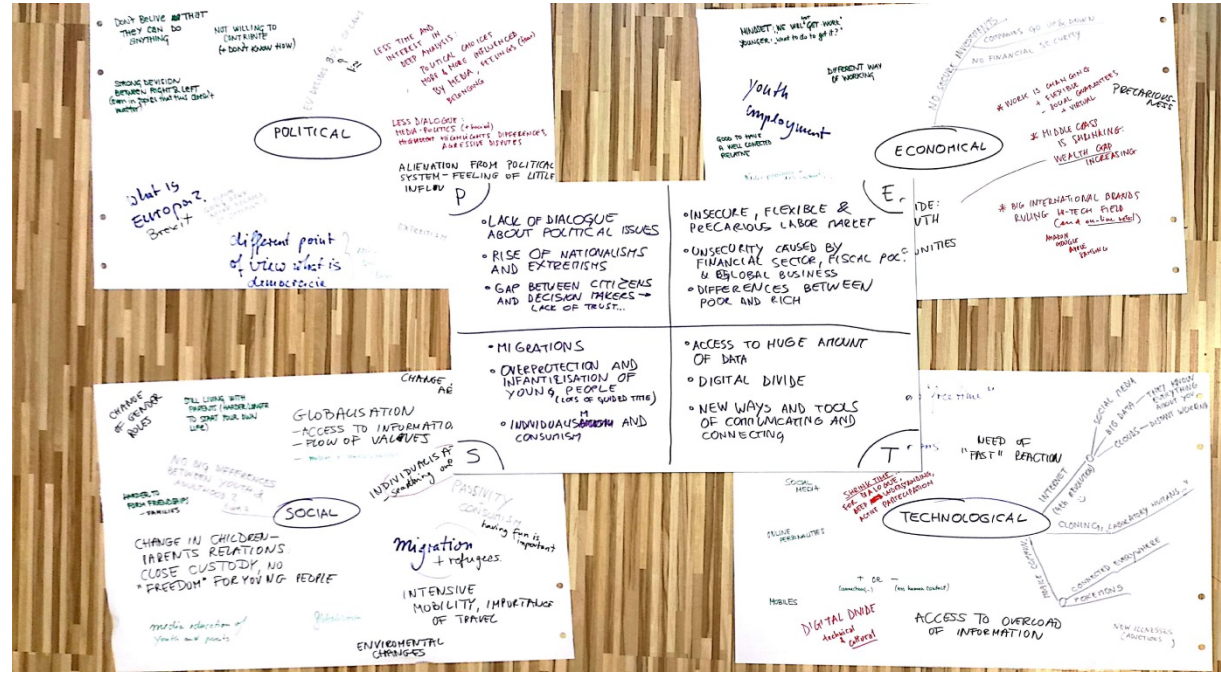 DON'T BELIVE THAT
THEY CAN DO
ANYTHING
NOT WILLING TO
CONTRIBUTE
(+ DON'T KNOW HOW)
STRONG DEVISION
BETWEEN RIGHT & LEFT
EU DECIDES
LESS TIME AND
INTEREST IN
DEEP ANALYSIS:
POLITICAL CHOICES
MORE & MORE INFLUENCED
BY MEDIA, FEELINGS
BELONGING
POLITICAL
LESS DIALOGUE:
MEDIA-POLITICS
HIGHLIGHTS DIFFERENCES,
AGRESSIVE DISPUTES
ALIENATION FROM POLITICAL
SYSTEM - FEELING OF LITTLE
INFLU
What is
Europe?
Brexit
different point
of view what is
democracie
MINDSET: WE WILL "GET WORK"
YOUNGER: what to do to get it?"
DIFFERENT WAY
OF WORKING
Youth
employment
GOOD TO HAVE
A WELL CONECTED
RELATIVE
NO SECURE INVESTMENTS...
COMPANIES GO UP & DOWN...
NO FINANCIAL SECURITY
ECONOMICAL
* WORK IS CHANGING
+ FLEXIBLE
- SOCIAL GUARANTEES
+ VIRTUAL
PRECARIOUS-
NESS
* MIDDLE CLASS
IS SHRINKING:
WEALTH GAP
INCREASING
* BIG INTERNATIONAL BRANDS
RULING HI-TECH FIELD
AMAZON
GOOGLE
APPLE
SAMSUNG
IDE:
UTH
UNITIES
P
• LACK OF DIALOGUE
ABOUT POLITICAL ISSUES
• RISE OF NATIONALISMS
AND EXTREMISMS
• GAP BETWEEN CITIZENS
AND DECISION MAKERS →
LACK OF TRUST...
E.
• INSECURE, FLEXIBLE &
PRECARIOUS LABOR MARKET
• UNSECURITY CAUSED BY
FINANCIAL SECTOR, FISCAL POC
& GLOBAL BUSINESS
• DIFFERENCES BETWEEN
POOR AND RICH
• MIGRATIONS
• OVERPROTECTION AND
INFANTILISATION OF
YOUNG PEOPLE
(LOTS OF GUIDED TIME)
• INDIVIDUALISM AND
CONSUMISM
S
• ACCESS TO HUGE AMOUNT
OF DATA
• DIGITAL DIVIDE
• NEW WAYS AND TOOLS
OF COMMUNICATING AND
CONNECTING
T
CHANGE
OF GENDER
ROLES
STILL LIVING WITH
PARENTS (HARDER/LONGER
TO START YOUR OWN
LIFE)
CHANGE
GLOBALISATION
- ACCESS TO INFORMATIO
- FLOW OF VALUES
NO BIG DIFFERENCES
BETWEEN YOUTH &
HARDER TO
FORM FRIENDSHIPS
- FAMILIES
SOCIAL
INDIVIDUALISAT
PASSIVITY
CONSUMISM
having fun is
important
CHANGE IN CHILDREN-
PARENTS RELATIONS
CLOSE CUSTODY, NO
"FREEDOM" FOR YOUNG PEOPLE
migration
+ refugees
INTENSIVE
MOBILITY, IMPORTANCE
OF TRAVEL
media education of
youth and parents
ENVIROMENTAL
CHANGES
NEED OF
"FAST" REACTION
SOCIAL MEDIA
BIG DATA
THEY KNOW
EVERYTHING
ABOUT YOU
CLOUDS - DISTANT WORKING
INTERNET
SOCIAL
MEDIA
SHRINK TIME
FOR DIALOGUE,
DEEP UNDERSTANDING,
ACTIVE PARTICIPATION
TECHNOLOGICAL
CLONING, LABORATORY HUMANS..."
ONLINE
PERSONALITIES
CONNECTED EVERYWHERE
POKEMONS
+ OR -
MOBILES
DIGITAL DIVIDE
technical
& cultural
ACCESS TO OVERLOAD
OF INFORMATION
NEW ILLNESSES